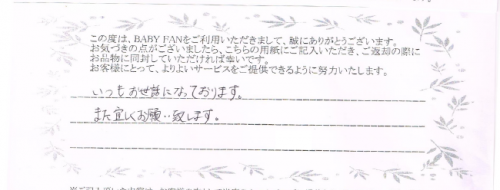 この度は、BABY FANをご利用いただきまして、誠にありがとうございます。
お気づきの点がございましたら、こちらの用紙にご記入いただき、ご返却の際に
お品物に同封していただければ幸いです。
お客様にとって、よりよいサービスをご提供できるように努力いたします。
いつもお世話になっております。
また宜しくお願い致します。